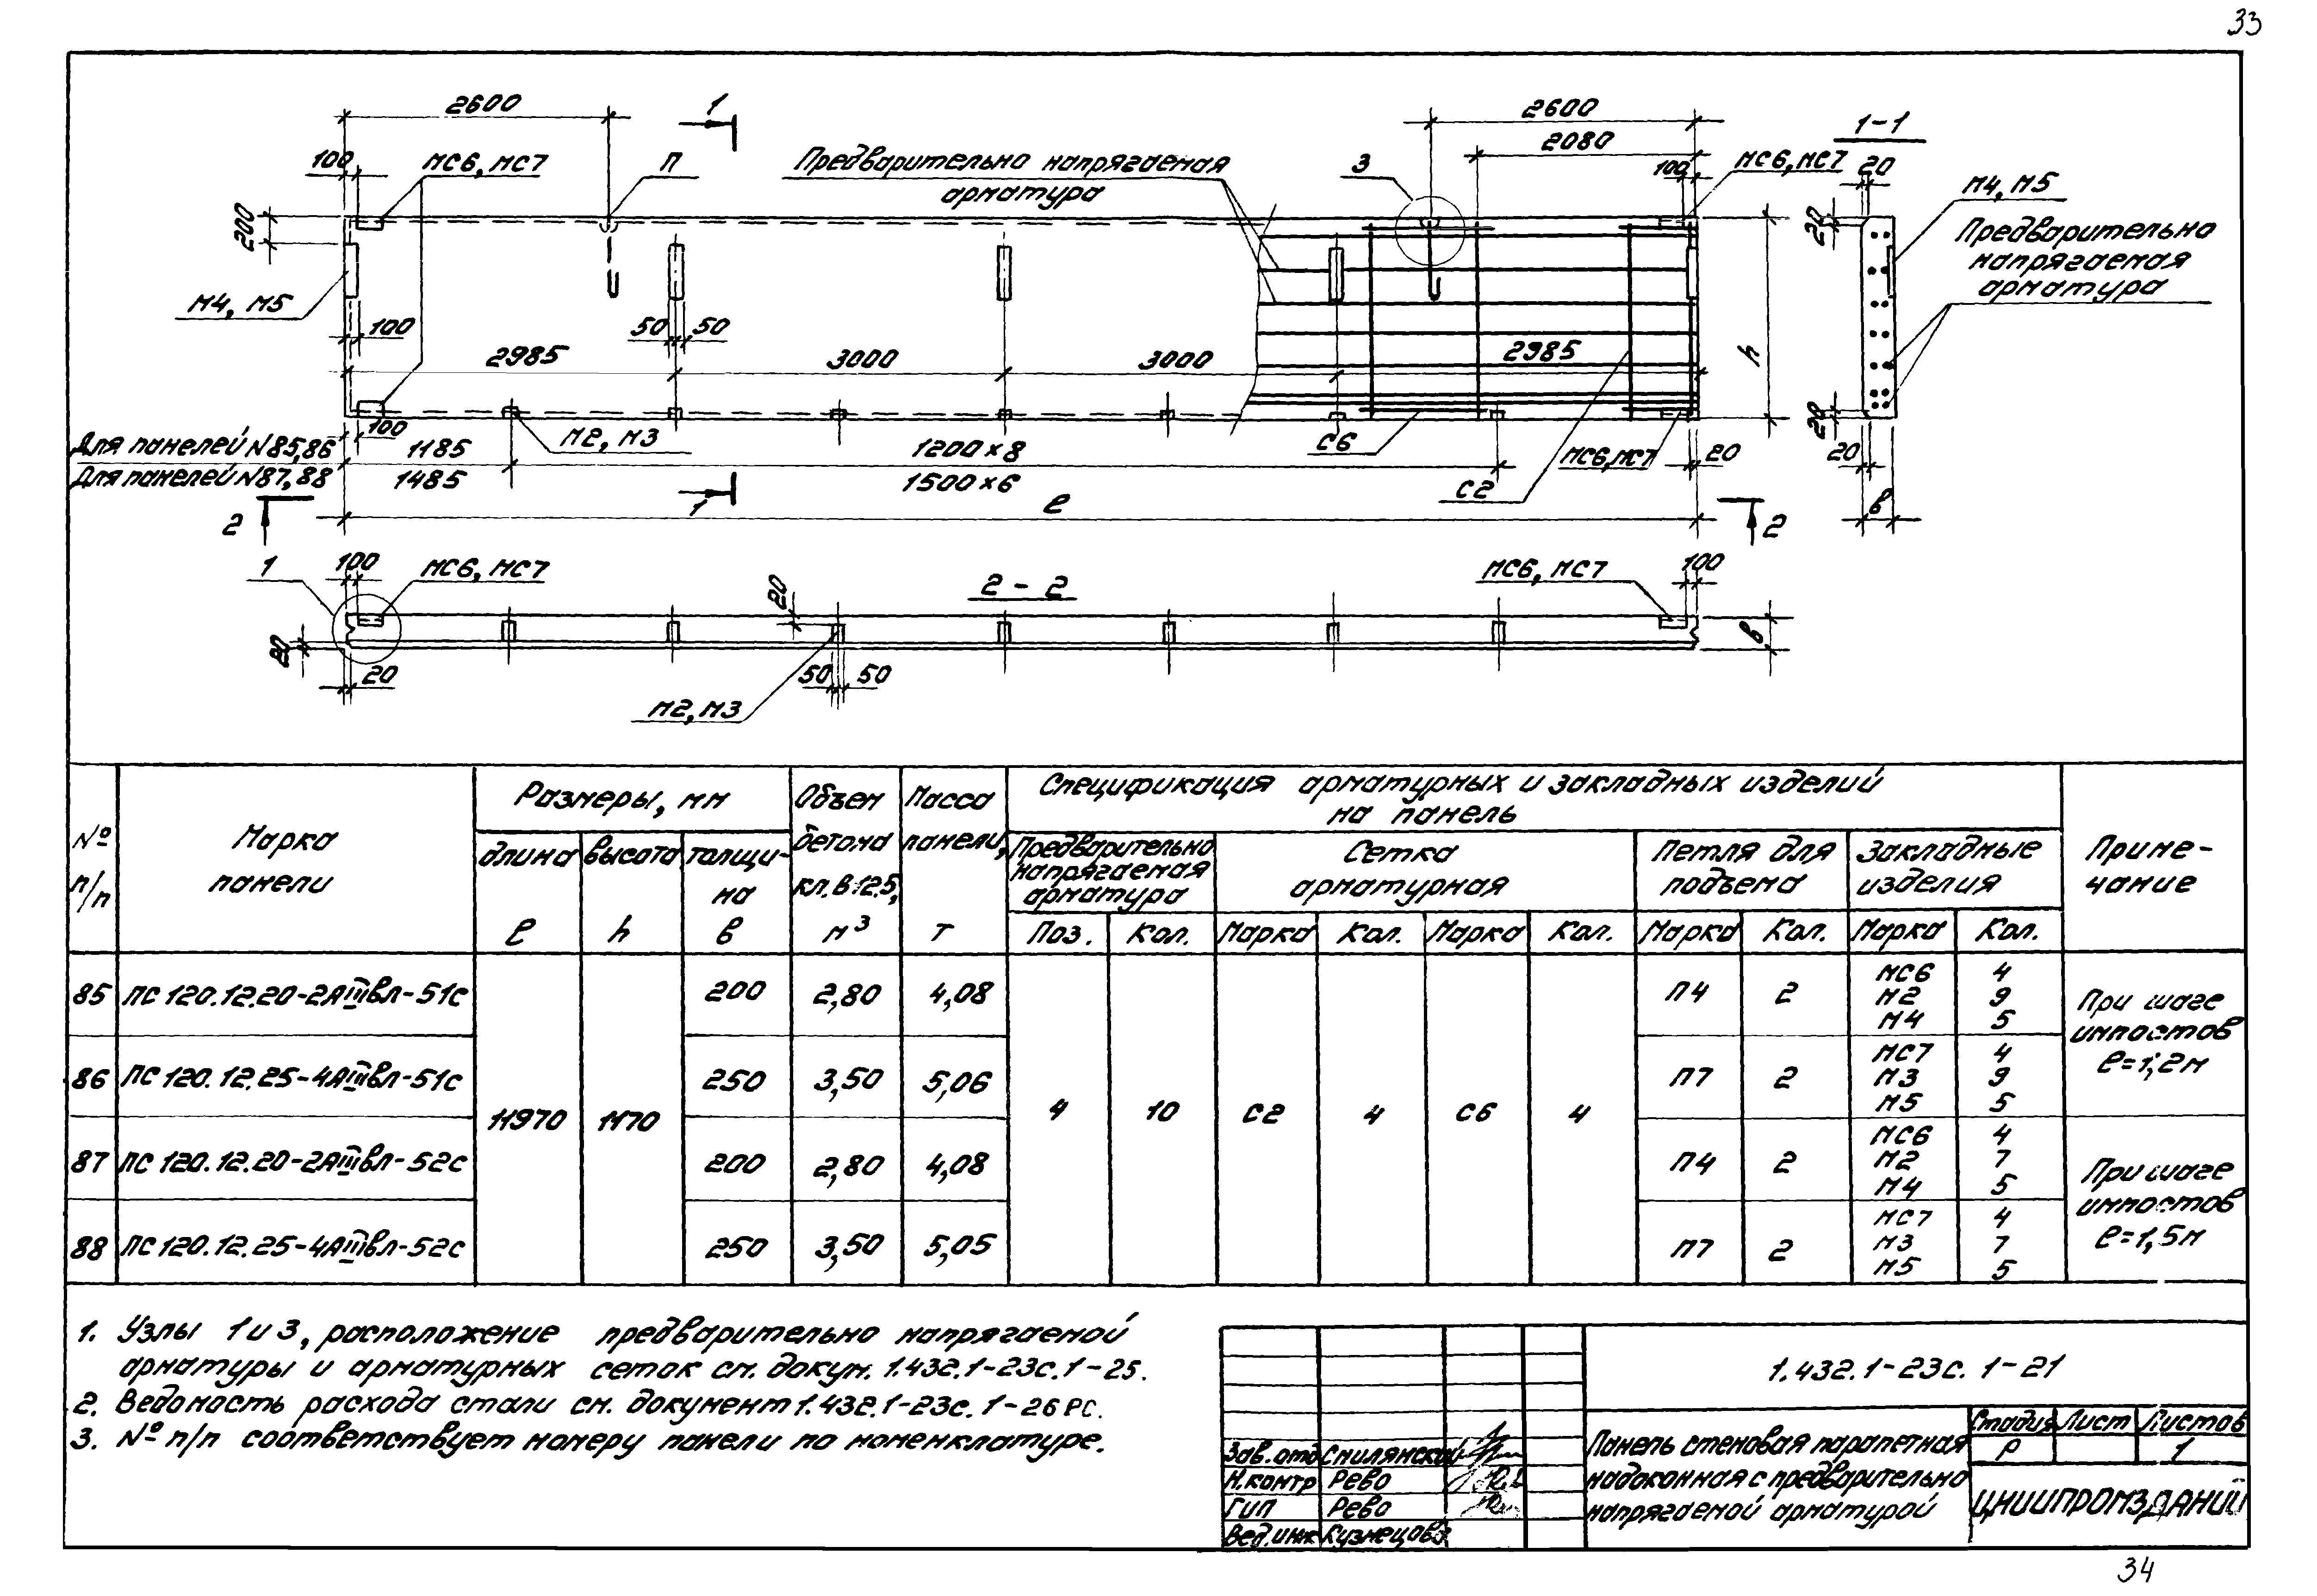 33
2600
1
2600
1-1
2080
100
МС6, МС7
П
Предварительно напрягаемая
арматура
3
100
МС6, МС7
20
М4, М5
200
20
Предварительно
напрягаемая
арматура
М4, М5
100
50
50
2985
3000
3000
2985
h
100
М2, М3
С6
20
Для панелей N85,86
1185
1200×8
МС6, МС7
20
20
Для панелей N87,88
1485
1500×6
С2
1
ℓ
в
2
2
1
100
МС6, МС7
20
2-2
МС6, МС7
100
20
20
50
50
в
М2, М3
№ п/п
Марка панели
Размеры, мм
длина ℓ
высота h
толщи-на в
Объем бетона кл. В 12.5, м³
Масса панели, т
Спецификация арматурных и закладных изделий
на панель
Предварительно напрягаемая арматура
Сетка арматурная
Петля для подъема
Закладные изделия
Приме-чание
Поз. Кол. Марка Кол. Марка Кол. Марка Кол. Марка Кол.
85 ПС 120.12.20-2АIIIвл-51с 200 2,80 4,08 П4 2
МС6 4
М2 9
М4 5
При шаге
импостов
ℓ=1,2м
86 ПС 120.12.25-4АIIIвл-51с 250 3,50 5,06 П7 2
МС7 4
М3 9
М5 5
11970 1170 4 10 С2 4 С6 4
87 ПС 120.12.20-2АIIIвл-52с 200 2,80 4,08 П4 2
МС6 4
М2 7
М4 5
При шаге
импостов
ℓ=1,5м
88 ПС 120.12.25-4АIIIвл-52с 250 3,50 5,05 П7 2
МС7 4
М3 7
М5 5
1. Узлы 1 и 3, расположение предварительно напрягаемой
арматуры и арматурных сеток см. докум. 1.432.1-23с.1-25.
2. Ведомость расхода стали см. документ 1.432.1-23с.1-26РС.
3. № п/п соответствует номеру панели по номенклатуре.
1.432.1-23с. 1-21
Зав. отд Смилянский
Н.контр Рево
ГИП Рево
Вед.инж Кузнецова
Панель стеновая парапетная
надоконная с предварительно
напрягаемой арматурой
Стадия Лист Листов
Р 1
ЦНИИПРОМЗДАНИЙ
34